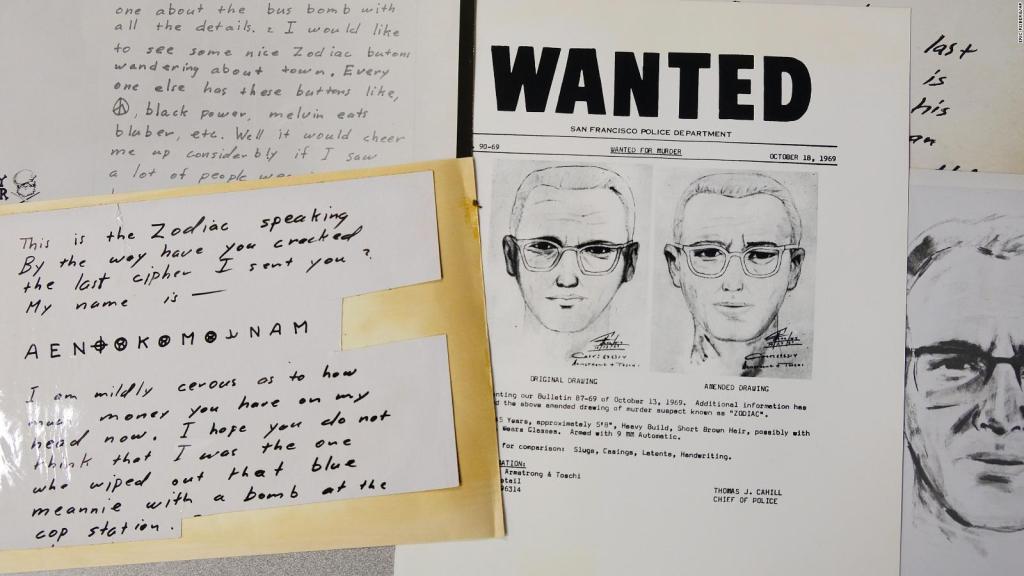 one about the bus bomb with
all the details. I would like
to see some nice Zodiac butons
wandering about town. Every
one else has these buttons like,
☮, black power, melvin eats
bluber, etc. Well it would cheer
me up considerbly if I saw
a lot of people
This is the Zodiac speaking
By the way have you cracked
the last cipher I sent you?
My name is —
A E N ⌖ ⊗ K ⊗ M ⊗ ⅃ N A M
I am mildly cerous as to how
much money you have on my
head now. I hope you do not
think that I was the one
who wiped out that blue
meannie with a bomb at the
cop station.
WANTED
SAN FRANCISCO POLICE DEPARTMENT
90-69 WANTED FOR MURDER OCTOBER 18, 1969
ORIGINAL DRAWING AMENDED DRAWING
enting our Bulletin 87-69 of October 13, 1969. Additional information has
the above amended drawing of murder suspect known as "ZODIAC".
5 Years, approximately 5'8", Heavy Build, Short Brown Hair, possibly with
Wears Glasses. Armed with 9 MM Automatic.
for comparison: Slugs, Casings, Latents, Handwriting.
ATION:
Armstrong & Toschi
etail
96314
THOMAS J. CAHILL
CHIEF OF POLICE
last
is
his